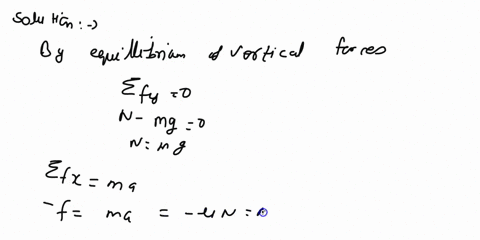 Solution :->
By equillibrium of vortical forces
Σfy = 0
N - mg = 0
N = mg
Σfx = ma
-f = ma = -μN =